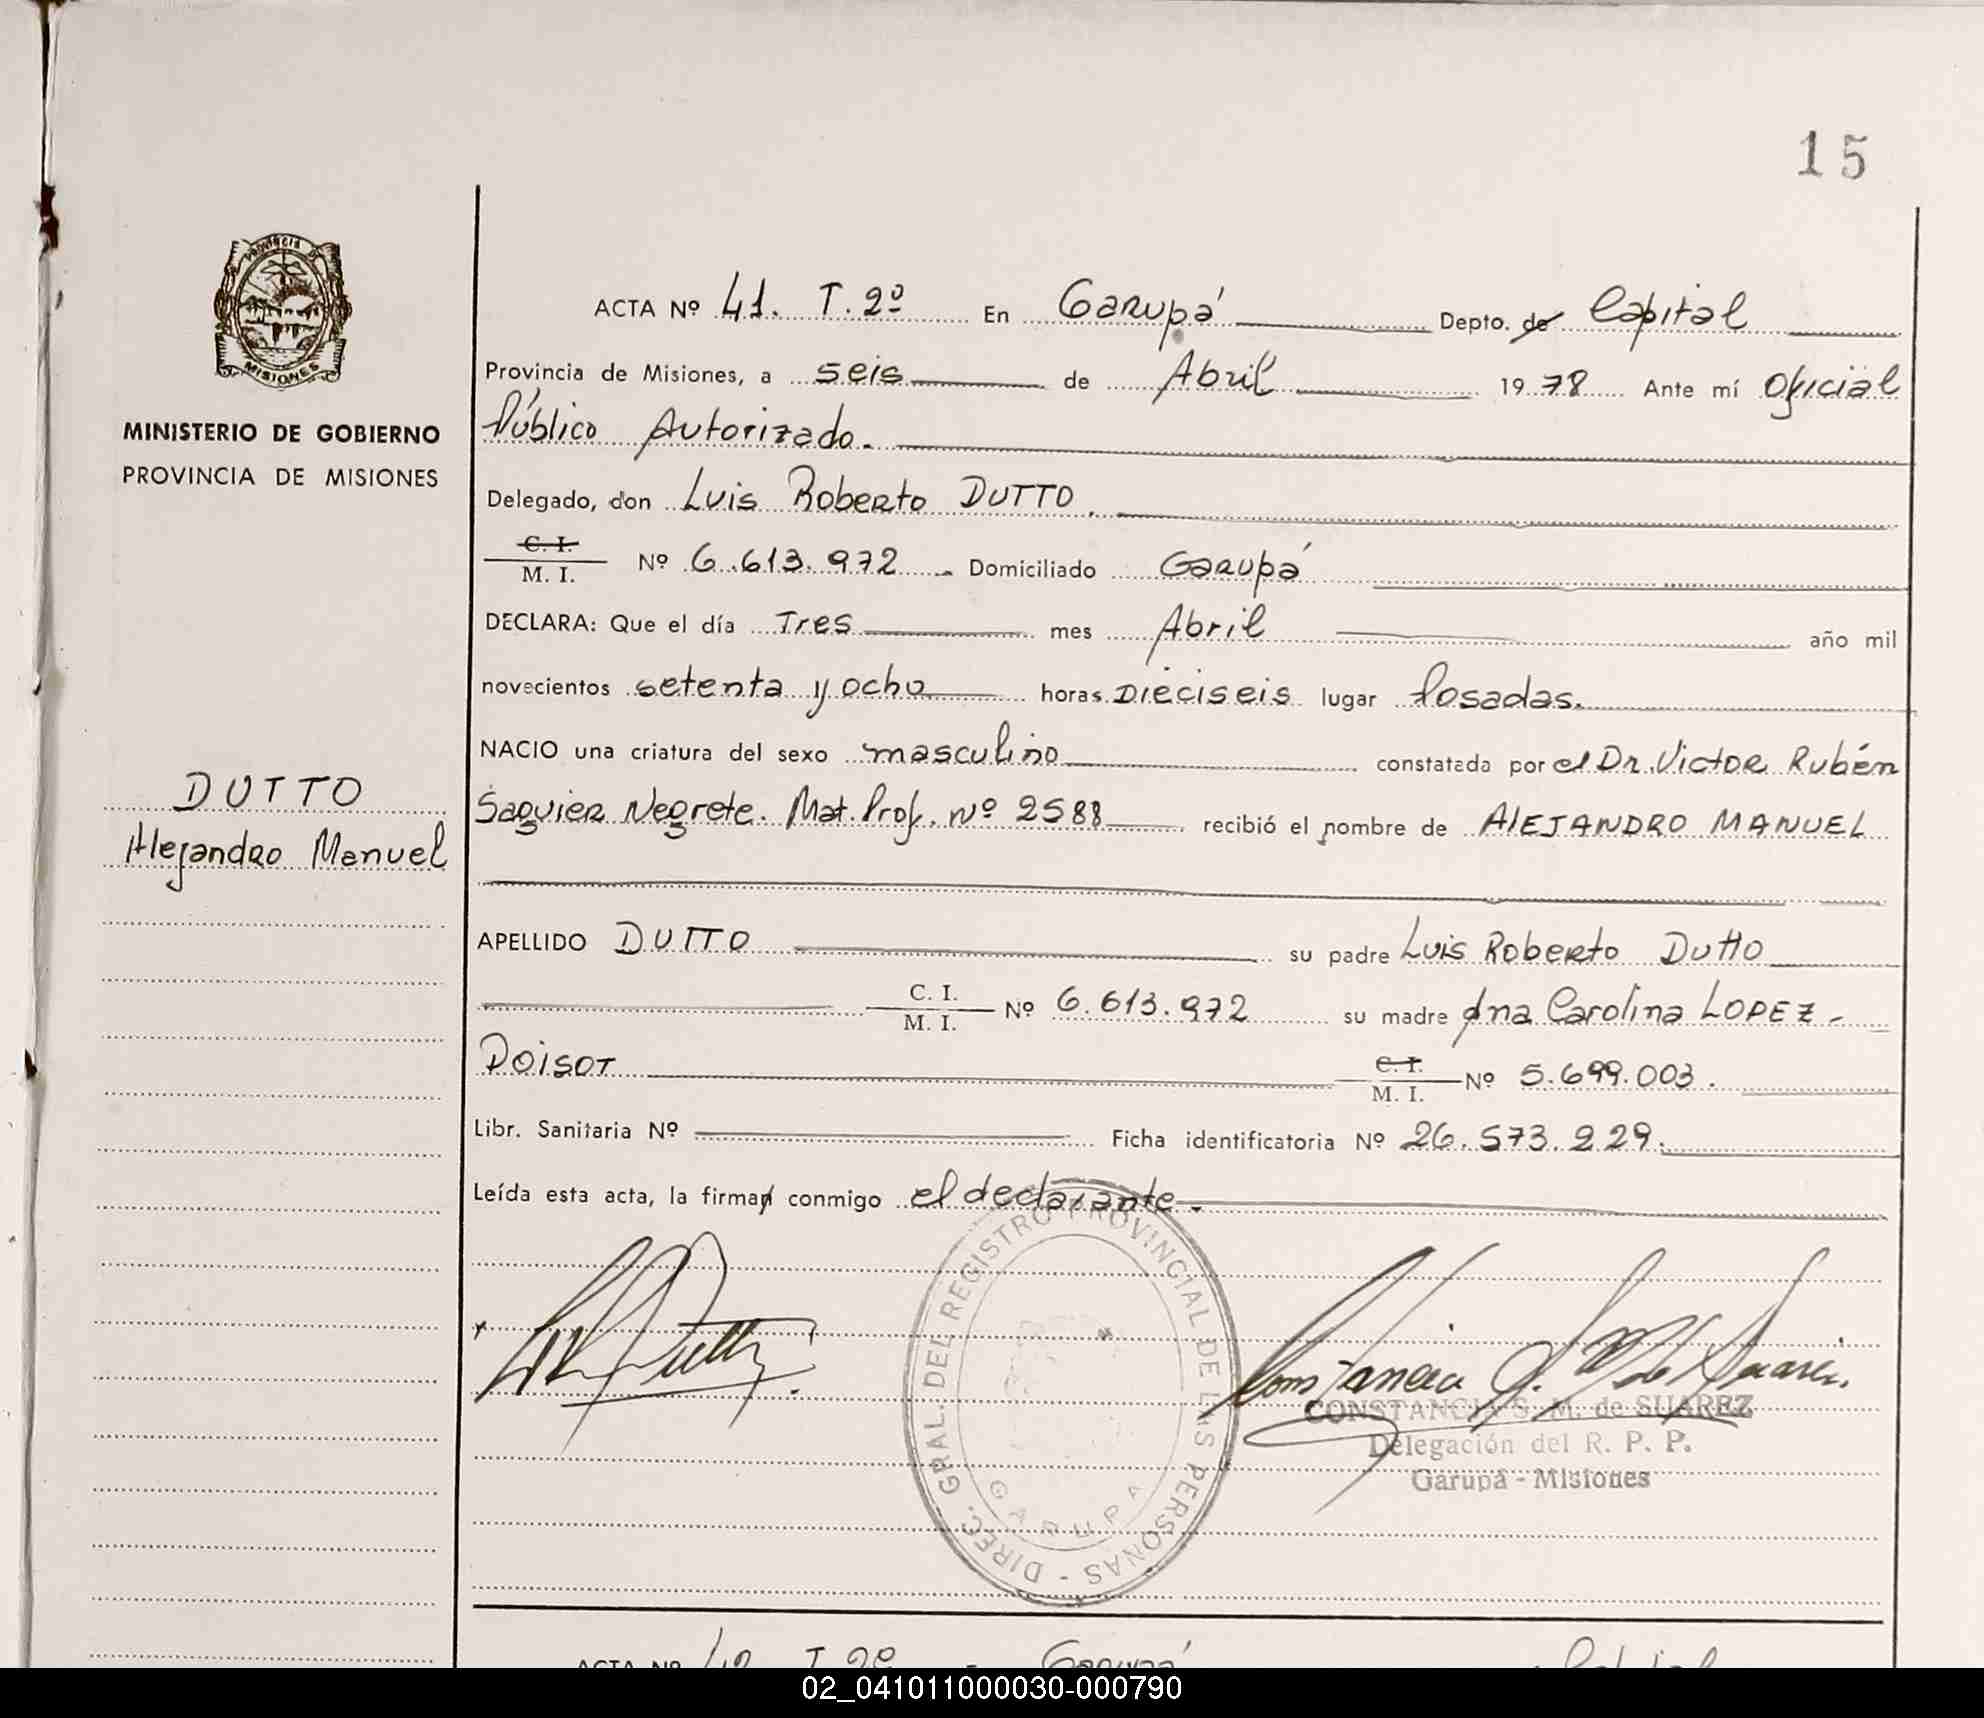 15
Provincia de
MISIONES
MINISTERIO DE GOBIERNO
PROVINCIA DE MISIONES
DUTTO
Alejandro Manuel
ACTA Nº 41. T. 2º En Garupá Depto. de Capital
Provincia de Misiones, a seis de Abril 1978 Ante mí Oficial
Público Autorizado.
Delegado, don Luis Roberto DUTTO.
C. I.
M. I. Nº 6.613.972 Domiciliado Garupá
DECLARA: Que el día Tres mes Abril año mil
novecientos setenta y ocho horas Dieciseis lugar Posadas.
NACIO una criatura del sexo masculino constatada por el Dr. Victor Rubén
Saguier Negrete. Mat. Prof. Nº 2588 recibió el nombre de AlEJANDRO MANUEL
APELLIDO DUTTO su padre Luis Roberto Dutto
C. I.
M. I. Nº 6.613.972 su madre dna Carolina LOPEZ-
POISOT C. I.
M. I. Nº 5.699.003.
Libr. Sanitaria Nº Ficha identificatoria Nº 26.573.229.
Leída esta acta, la firman conmigo el declarante.
DIREC. GRAL. DEL REGISTRO PROVINCIAL DE LAS PERSONAS -
GARUPA
CONSTANCIA S. M. de SUAREZ
Delegación del R. P. P.
Garupá - Misiones
ACTA Nº 42 T. 2º Garupá Capital
02_041011000030-000790